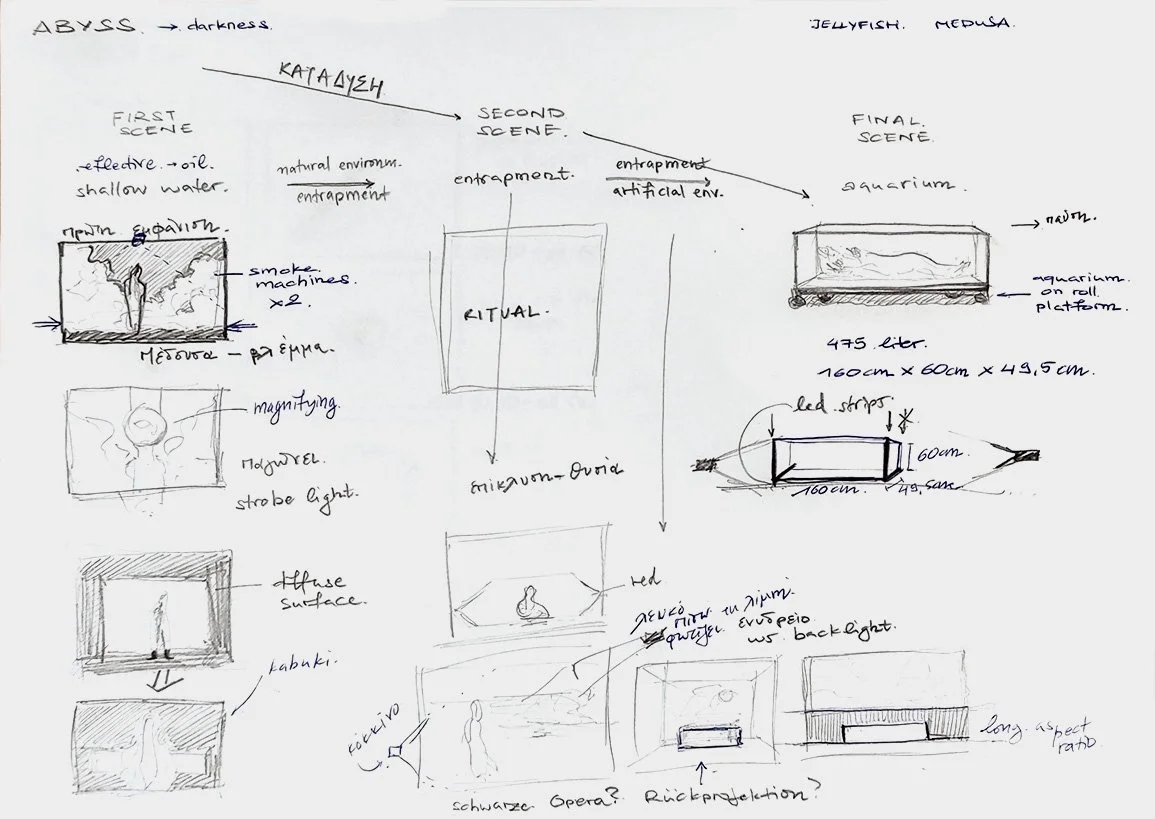 ABYSS. → darkness.
JELLYFISH. MEDUSA.
ΚΑΤΑΔΥΣΗ
FIRST
SCENE
reflective → oil.
shallow water.
natural environm.
entrapment
SECOND
SCENE.
entrapment.
entrapment
artificial env.
FINAL
SCENE.
aquarium.
πρώτη εμφάνιση.
smoke
machines
x2.
Μέδουσα – βλέμμα.
magnifying.
παγώνει.
strobe light.
diffuse
surface.
kabuki.
RITUAL.
επίκληση – θυσία
red
λευκό
πίσω τη λίμνη.
φωτίζει ενυδρείο
ως backlight.
κόκκινο
schwarze Opera? Rückprojektion?
→ παύση.
aquarium
on roll
platform.
475 liter.
160cm x 60cm x 49,5cm.
led strips.
60cm.
160cm.
49,5cm
long aspect
ratio